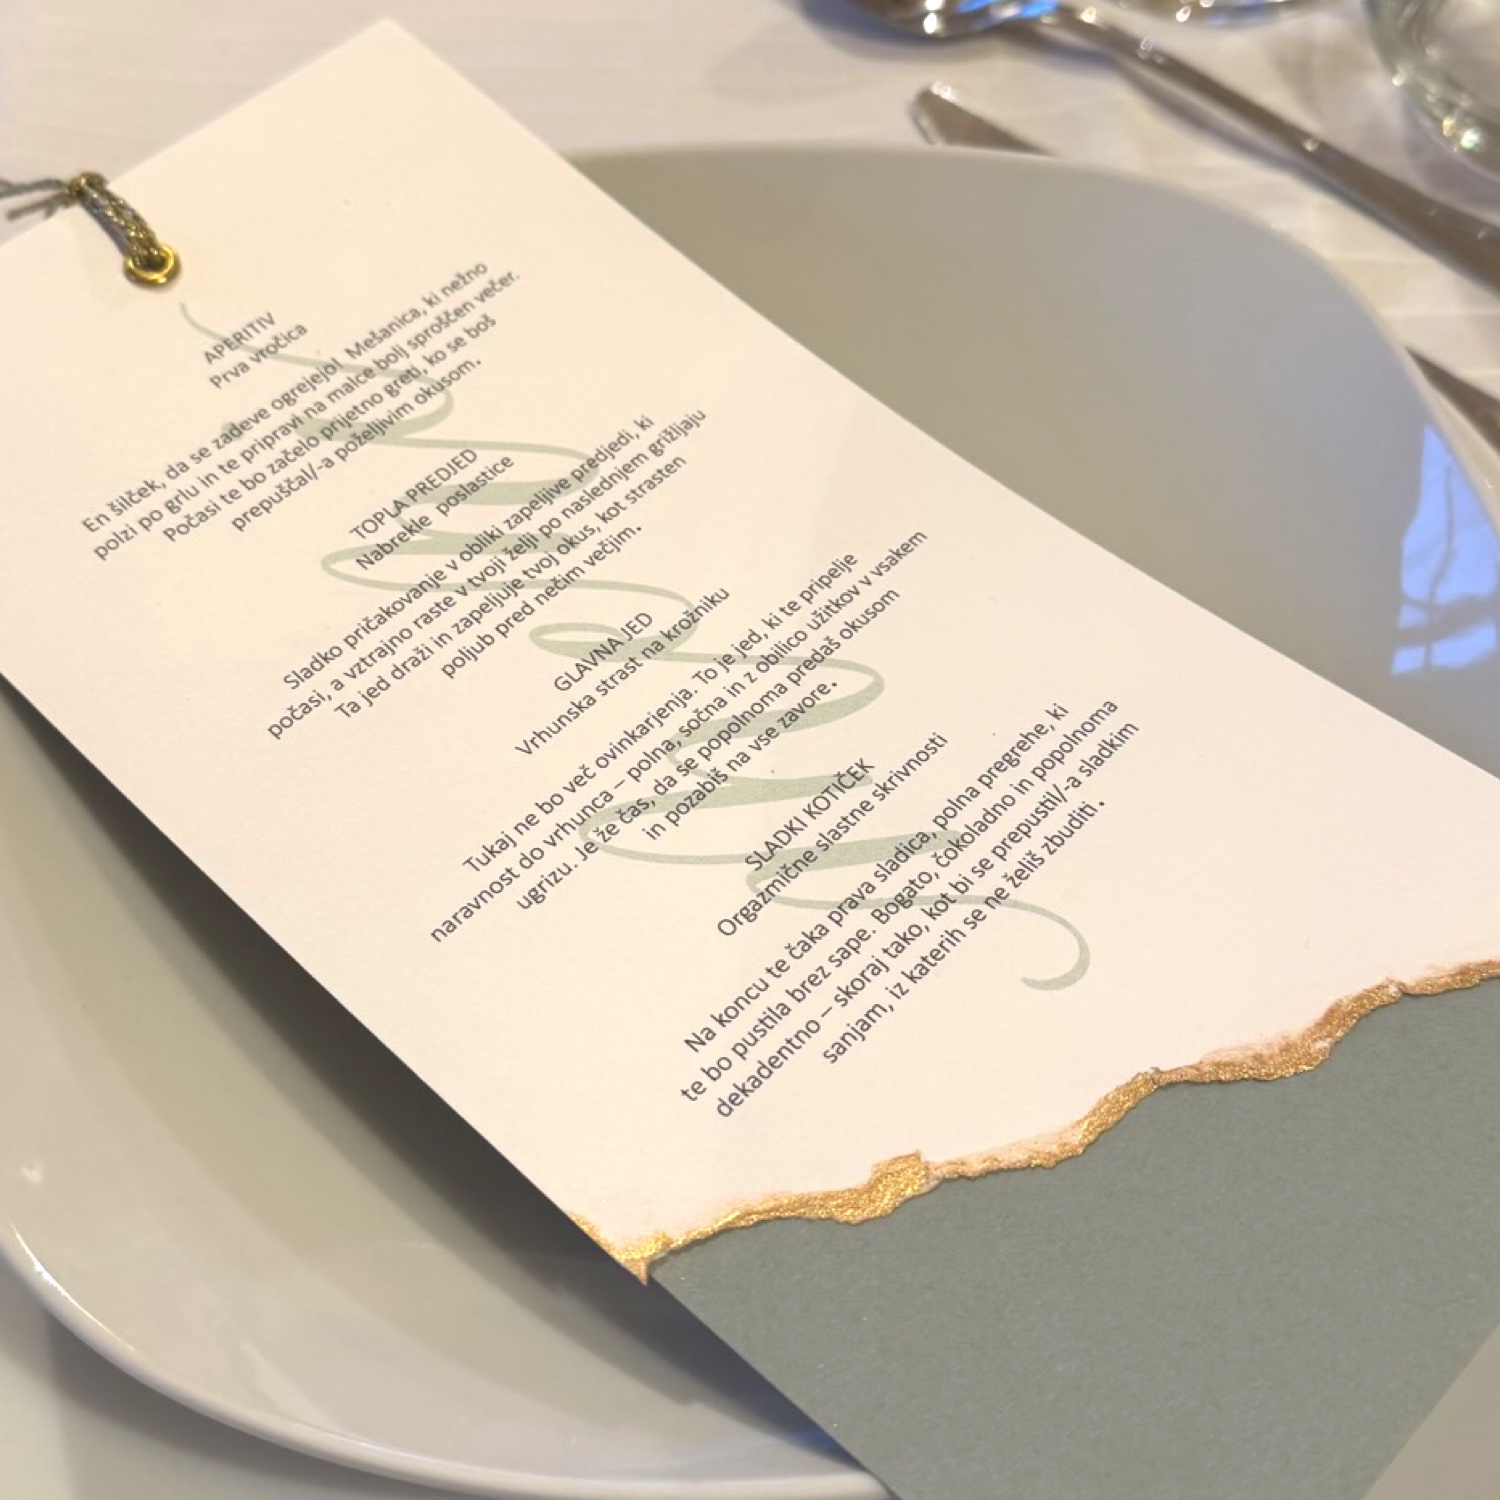 APERITIV
Prva vročica
En šilček, da se zadeve ogrejejo! Mešanica, ki nežno
polzi po grlu in te pripravi na malce bolj sproščen večer.
Počasi te bo začelo prijetno greti, ko se boš
prepuščal/-a poželjivim okusom.
TOPLA PREDJED
Nabrekle poslastice
Sladko pričakovanje v obliki zapeljive predjedi, ki
počasi, a vztrajno raste v tvoji želji po naslednjem grižljaju
Ta jed draži in zapeljuje tvoj okus, kot strasten
poljub pred nečim večjim.
GLAVNA JED
Vrhunska strast na krožniku
Tukaj ne bo več ovinkarjenja. To je jed, ki te pripelje
naravnost do vrhunca – polna, sočna in z obilico užitkov v vsakem
ugrizu. Je že čas, da se popolnoma predaš okusom
in pozabiš na vse zavore.
SLADKI KOTIČEK
Orgazmične slastne skrivnosti
Na koncu te čaka prava sladica, polna pregrehe, ki
te bo pustila brez sape. Bogato, čokoladno in popolnoma
dekadentno – skoraj tako, kot bi se prepustil/-a sladkim
sanjam, iz katerih se ne želiš zbuditi.